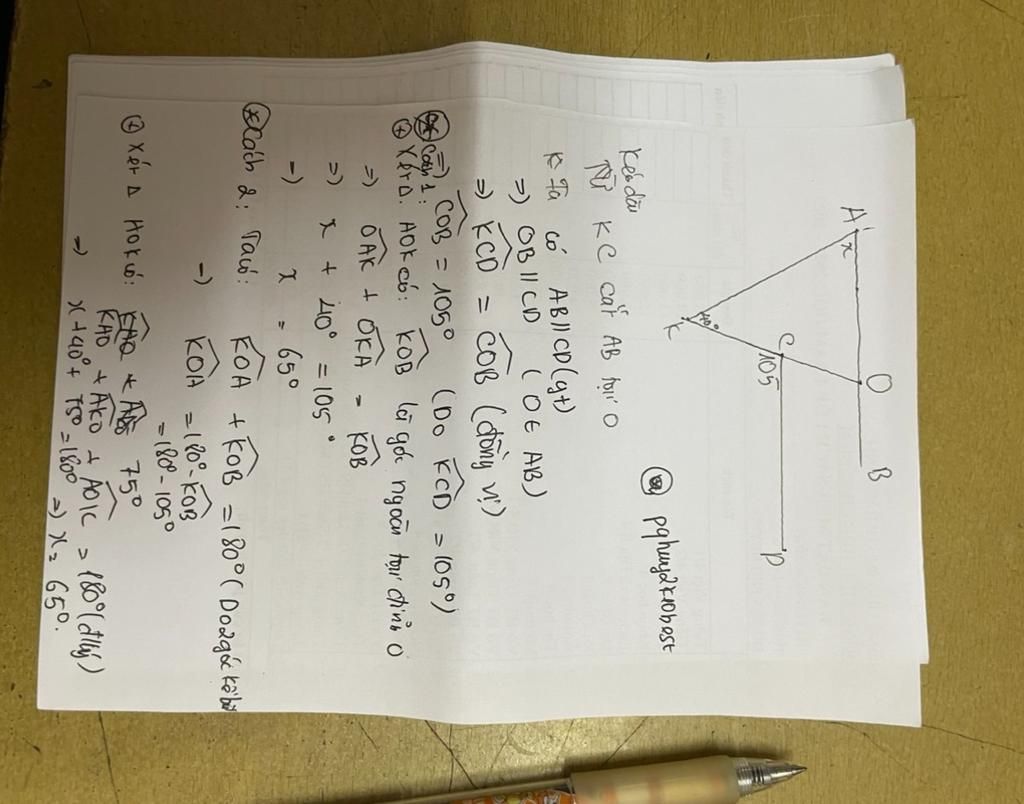 A
O
B
x
C
105
D
40°
K
@ pqhuy2k10best
Kéo dài
Từ KC cắt AB tại O
Ta có AB // CD (gt)
=) OB // CD (O ∈ AB)
=) KCD = COB (đồng vị)
=) COB = 105° (Do KCD = 105°)
* Cách 1:
+ Xét Δ AOK có: KOB là góc ngoài tại đỉnh O
=) OAK + OKA = KOB
=) x + 40° = 105°
-) x = 65°
* Cách 2: Ta có: KOA + KOB = 180° (Do 2 góc kề bù
-) KOA = 180° - KOB
= 180° - 105°
75°
+ Xét Δ AOK có:
KAO + AKO + AOK = 180° (đ/lý)
=) x + 40° + 75° = 180° =) x = 65°.